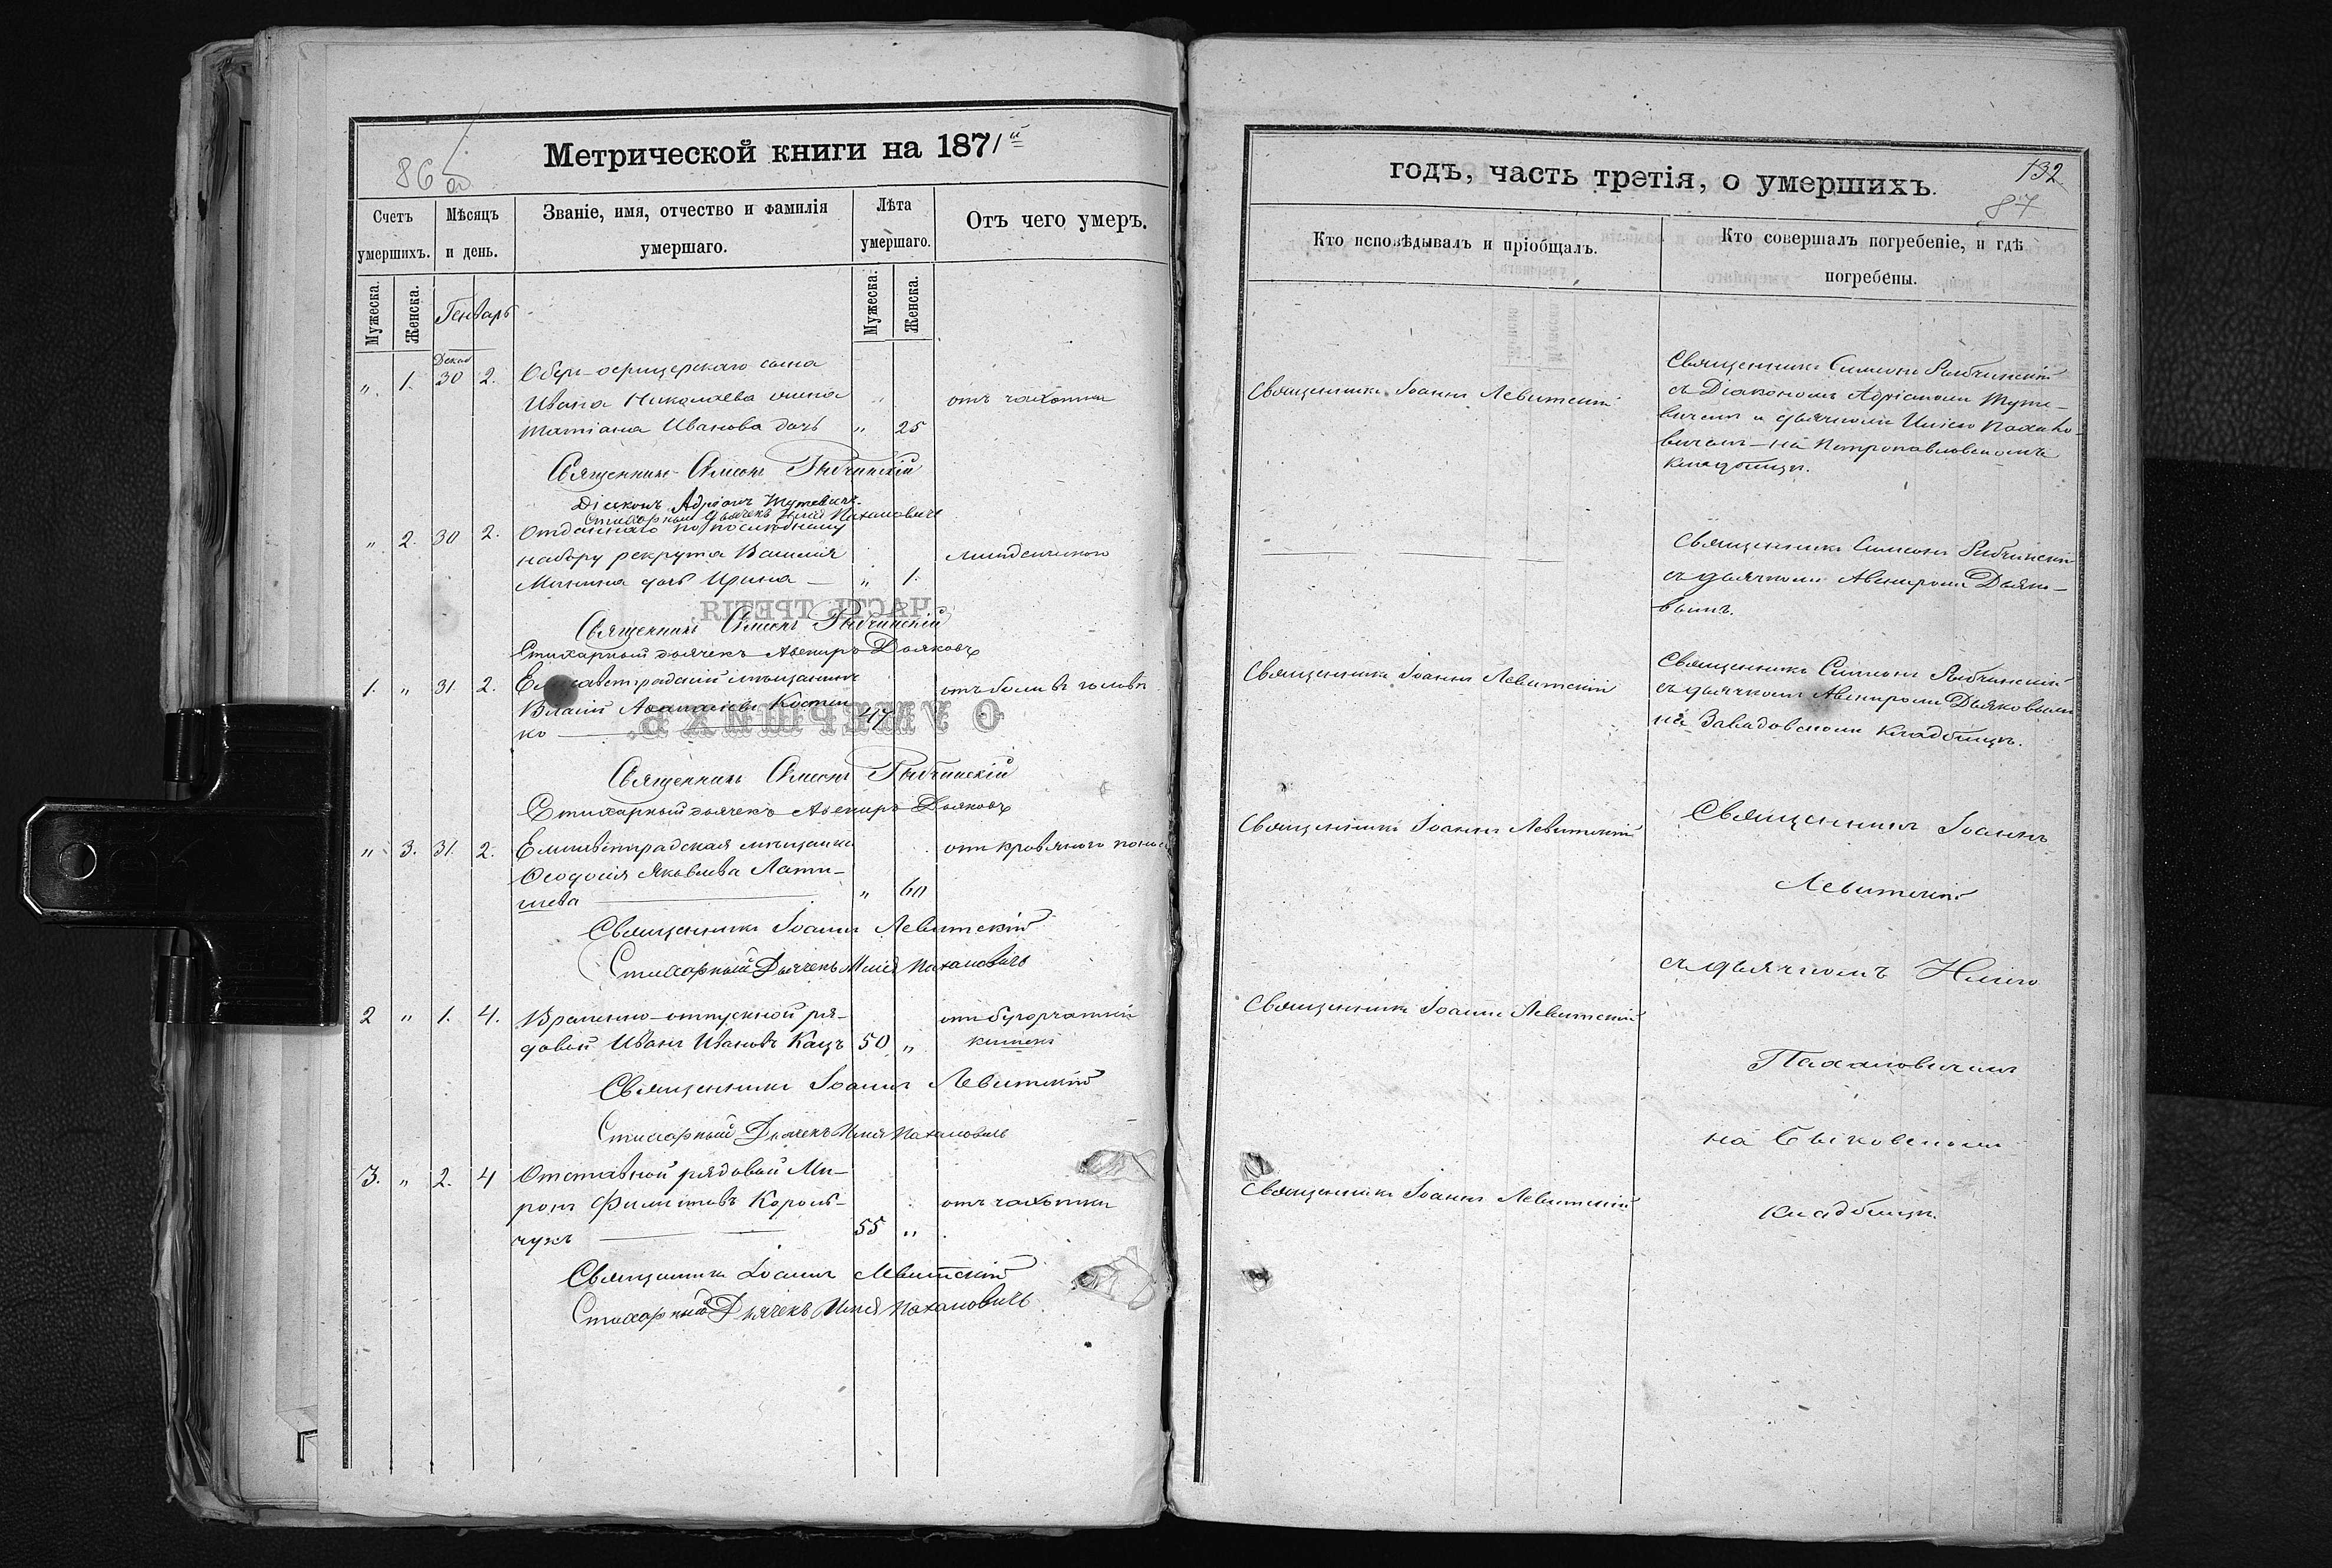 Метрической книги на 1871й
86 об
Счетъ умершихъ.
Мѣсяцъ и день.
Званіе, имя, отчество и фамилія умершаго.
Лѣта умершаго.
Отъ чего умеръ.
Мужеска.
Женска.
Генварь
Мужеска.
Женска.
Декаб
" 1. 30 2. Обер-офицерскаго сына
Ивана Николаева жена " отъ чахотки
Татіана Иванова дочь " 25
Священникъ Симеонъ Рыбчинскій
Діаконъ Адріанъ
Стихарный Дьячекъ Илія Пахановичъ
" 2. 30 2. Отданнаго по послѣднему
набору рекрута Василія младенческою
Минина дочь Ирина — " 1.
Священникъ Симеонъ Рыбчинскій
Стихарный дьячекъ Авениръ Дьяковъ
1. " 31 2. Елисаветградскій мѣщанинъ отъ боли въ головѣ
Власій Аѳанасіевъ Костен 47 "
ко —
Священникъ Симеонъ Рыбчинскій
Стихарный дьячекъ Авениръ Дьяковъ
" 3. 31. 2. Елисаветградская мѣщанка отъ кроваваго поноса
Ѳеодосія Яковлева Лати-
шева — " 60
Священникъ Іоаннъ Левитскій
Стихарный Дьячекъ Илія Пахановичъ
2 " 1. 4. Временно-отпускной ря- отъ бугорчатки
довой Иванъ Ивановъ Кацъ 50 " кишекъ
Священникъ Іоаннъ Левитскій
Стихарный Дьячекъ Илія Пахановичъ
3. " 2. 4 Отставной рядовой Ми-
ронъ Филиповъ Король- отъ чахотки
чукъ — 55 "
Священникъ Іоаннъ Левитскій
Стихарный Дьячекъ Илія Пахановичъ
годъ, часть третія, о умершихъ.
132
87
Кто исповѣдывалъ и пріобщалъ.
Кто совершалъ погребеніе, и гдѣ погребены.
Священникъ Іоаннъ Левитскій
Священникъ Симеонъ Рыбчинскій
съ Діакономъ Адріаномъ
вичемъ и дьячкомъ Иліею Пахано-
вичемъ — на Петропавловскомъ
кладбищѣ.
Священникъ Симеонъ Рыбчинскій
съ дьячкомъ Авениромъ Дьяко-
вымъ.
Священникъ Іоаннъ Левитскій
Священникъ Симеонъ Рыбчинскій
съ дьячкомъ Авениромъ Дьяковымъ
на Завадовскомъ кладбищѣ.
Священникъ Іоаннъ Левитскій
Священникъ Іоаннъ
Левитскій
съ дьячкомъ Иліею
Священникъ Іоаннъ Левитскій
Пахановичемъ
на Быковскомъ
Священникъ Іоаннъ Левитскій
кладбищѣ.